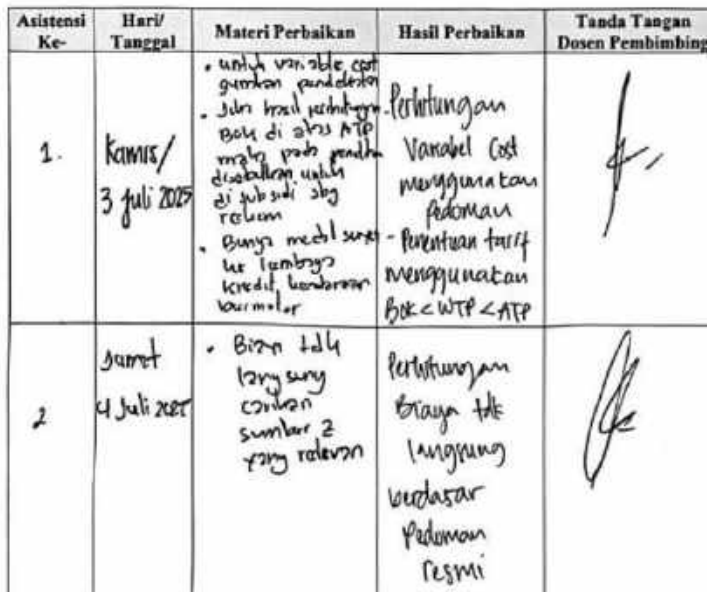 Asistensi Ke-
Hari/ Tanggal
Materi Perbaikan
Hasil Perbaikan
Tanda Tangan Dosen Pembimbing
1.
Kamis/
3 Juli 2025
• untuk variable cost
gunakan
• hasil perhitungan
BOK di atas ATP
maka pada
untuk
di subsidi sbg
• Bunga modal
ke lembaga
kredit kendaraan
bermotor
Perhitungan
Variabel Cost
menggunakan
pedoman
- Penentuan tarif
menggunakan
BOK < WTP < ATP
2
Jumat
4 Juli 2025
• Biaya tdk
langsung
carikan
sumber 2
yang relevan
Perhitungan
Biaya tdk
langsung
berdasar
Pedoman
resmi